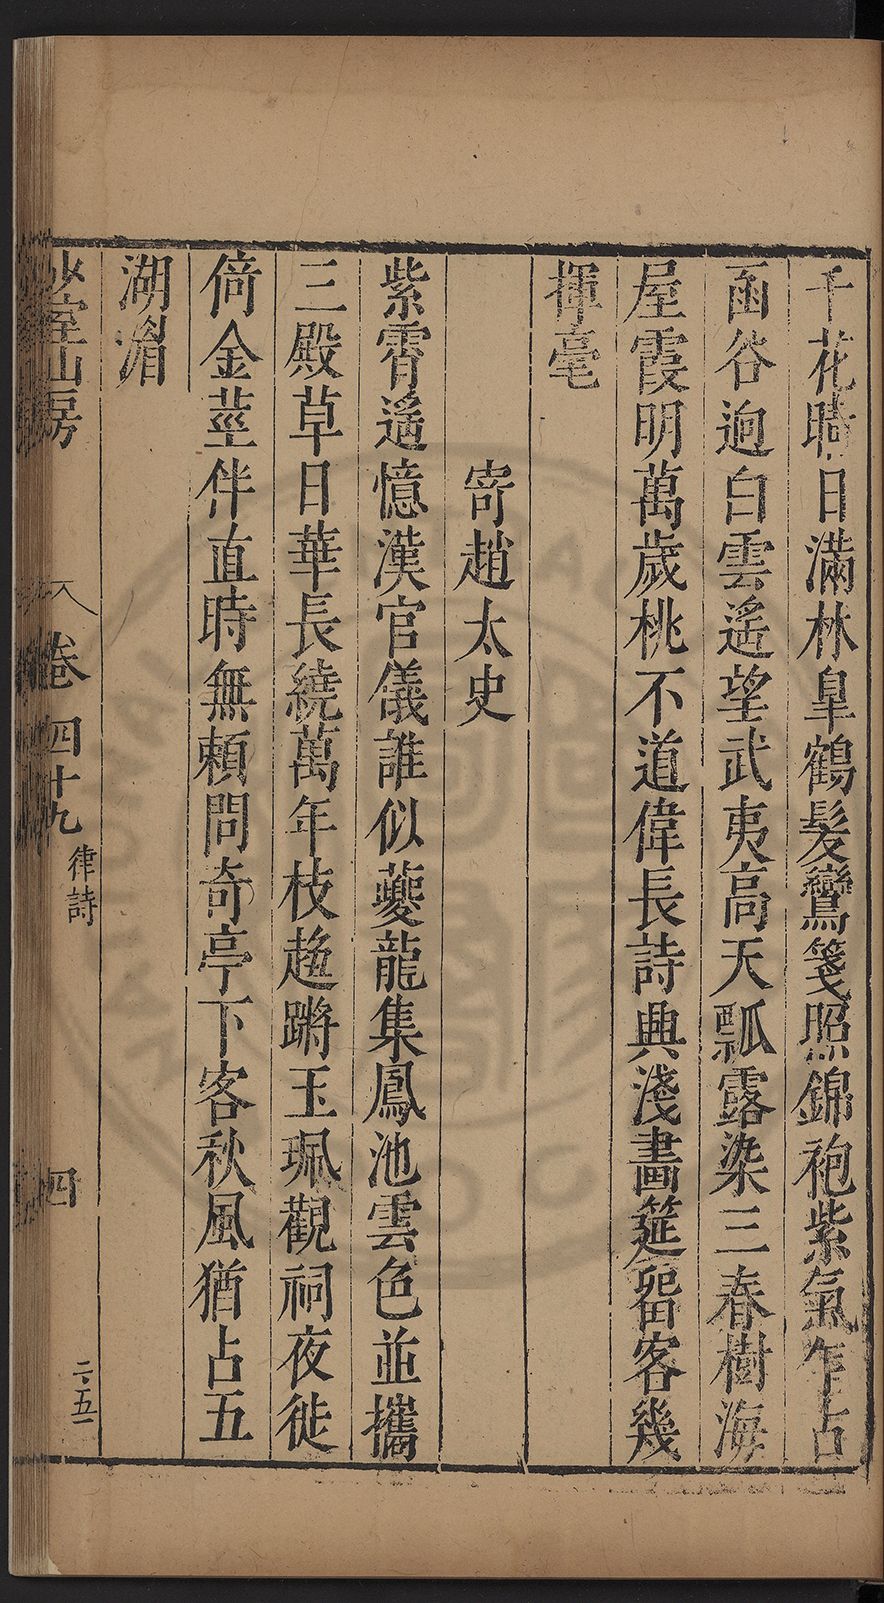 千花晴日滿林臯鶴髮鸞箋照錦袍紫氣乍占
函谷逈白雲遙望武夷高天瓢露染三春樹海
屋霞明萬歲桃不道偉長詩興淺畵筵畱客幾
揮毫
寄趙太史
紫霄遙憶漢官儀誰似夔龍集鳳池雲色並攜
三殿草日華長繞萬年枝趨蹡玉珮觀祠夜徙
倚金莖伴直時無賴問奇亭下客秋風猶占五
湖湄
少室山房
卷四十九
律詩
四
二·五一